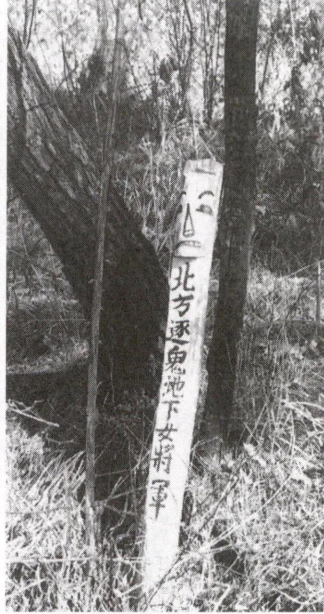 北方逐鬼地下女將軍